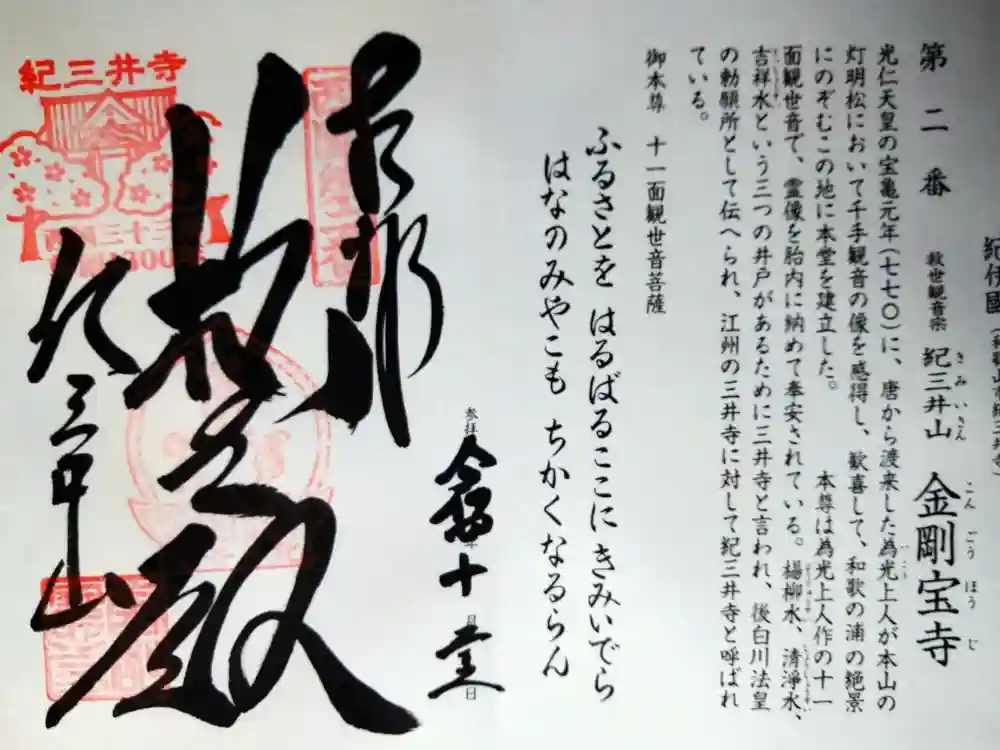 第二番 救世観音宗 紀三井山 金剛宝寺
きみいさん こんごうほうじ
光仁天皇の宝亀元年(七七〇)に、唐から渡来した為光上人が本山の
灯明松において千手観音の像を感得し、歓喜して、和歌の浦の絶景
にのぞむこの地に本堂を建立した。 本尊は為光上人作の十一
面観世音で、霊像を胎内に納めて奉安されている。楊柳水、清浄水、
吉祥水という三つの井戸があるために三井寺と言われ、後白川法皇
の勅願所として伝へられ、江州の三井寺に対して紀三井寺と呼ばれ
ている。
御本尊 十一面観世音菩薩
ふるさとを はるばるここにきみいでら
はなのみやこも ちかくなるらん
参拝 年十月 日
奉拝
救世殿
紀三井山
紀三井寺